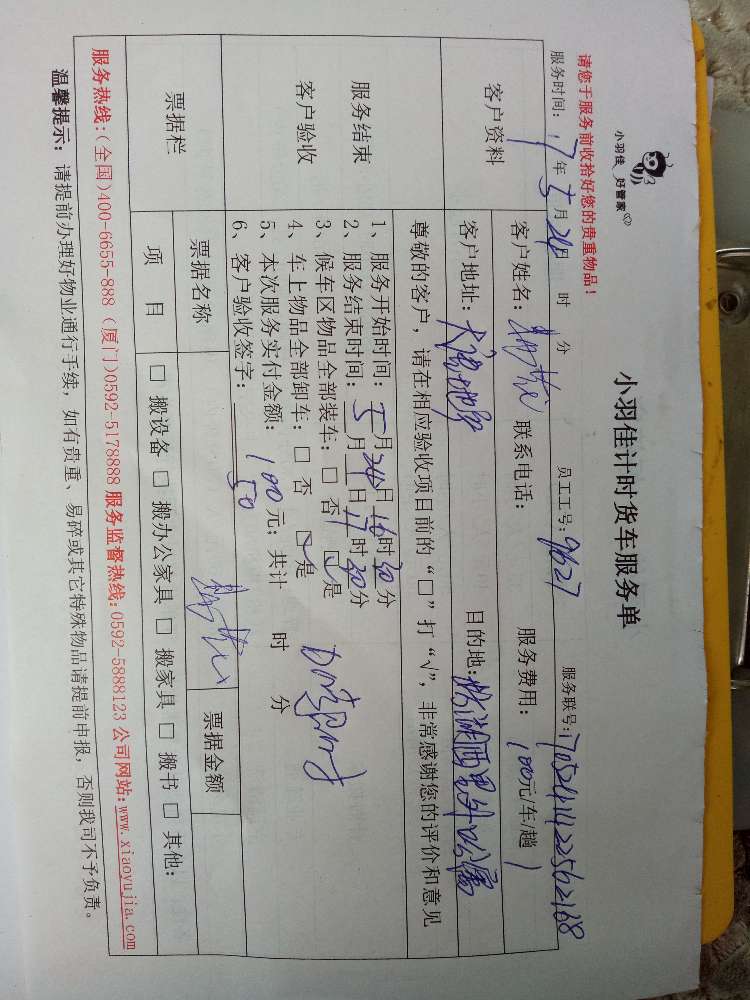 小羽佳 好管家
小羽佳计时货车服务单
请您于服务前收拾好您的贵重物品!
服务时间: 17年5月24日 时 分 员工工号: 9627 服务联号: 1705241422562168
客户资料 客户姓名: 联系电话: 服务费用: 100元/车/趟
客户地址: 目的地:
尊敬的客户，请在相应验收项目前的“□”打“√”，非常感谢您的评价和意见
服务结束
客户验收
1、服务开始时间: 5月24日16时30分
2、服务结束时间: 5月 日17时30分
3、候车区物品全部装车: □ 否 ☑是
4、车上物品全部卸车: □ 否 ☑是
5、本次服务实付金额: 100元; 共计 时 分
6、客户验收签字: 50
票据栏 票据名称 票据金额
项 目 □ 搬设备 □ 搬办公家具 □ 搬家具 □ 搬书 □ 其他:
服务热线:(全国)400-6655-888 (厦门)0592-5178888 服务监督热线:0592-5888123 公司网站:www.xiaoyujia.com
温馨提示: 请提前办理好物业通行手续，如有贵重、易碎或其它特殊物品请提前申报，否则我司不予负责。